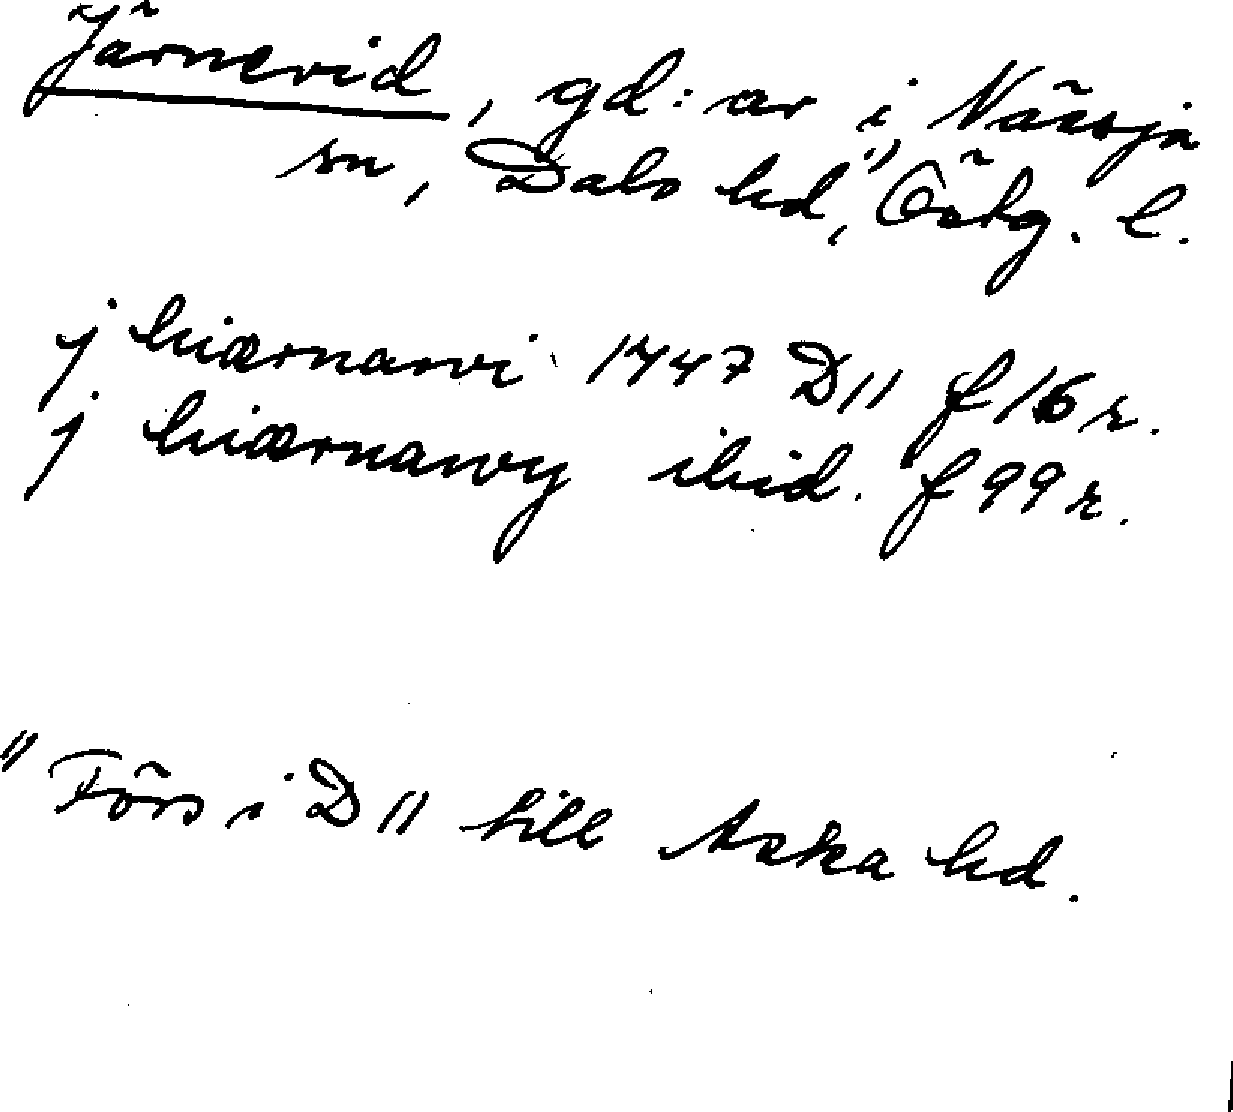 Järnevid, gd:ar i Nässja
sn, Dals hd,¹⁾ Östg. l.
j hiærnawi 1447 D 11 f 16 r.
j hiærnawy ibid. f 99 r.
¹⁾ Förs i D 11 till Aska hd.